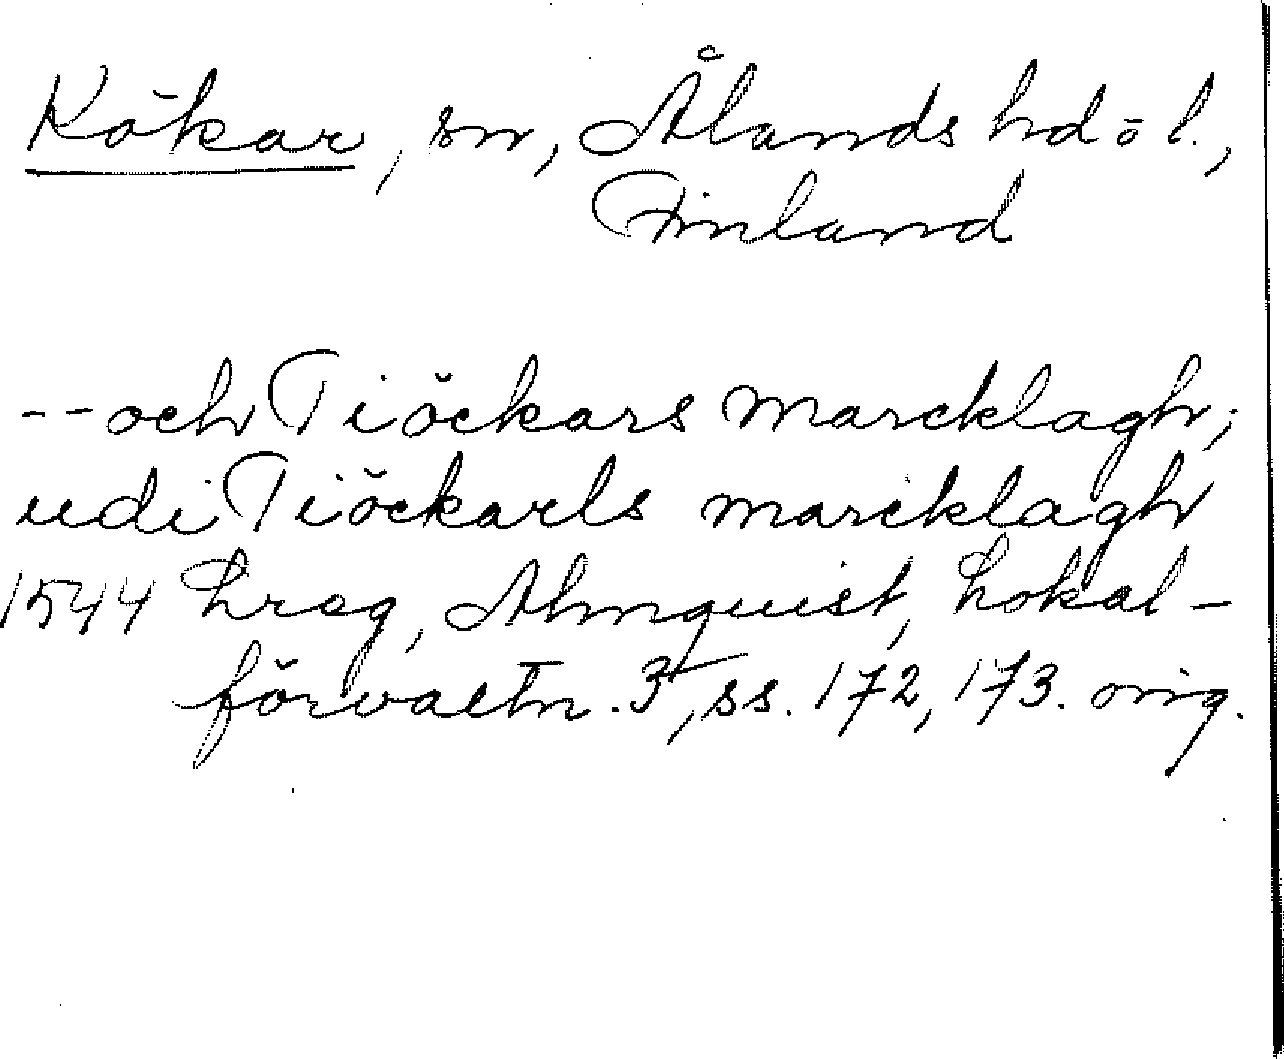 Kökar, sn, Ålands hd o l.,
Finland
-- och Tiöckars marcklagh;
udi Tiöckarls marcklagh
1544 Lreg, Almquist, Lokal-
förvaltn. 3, ss. 172, 173. orig.